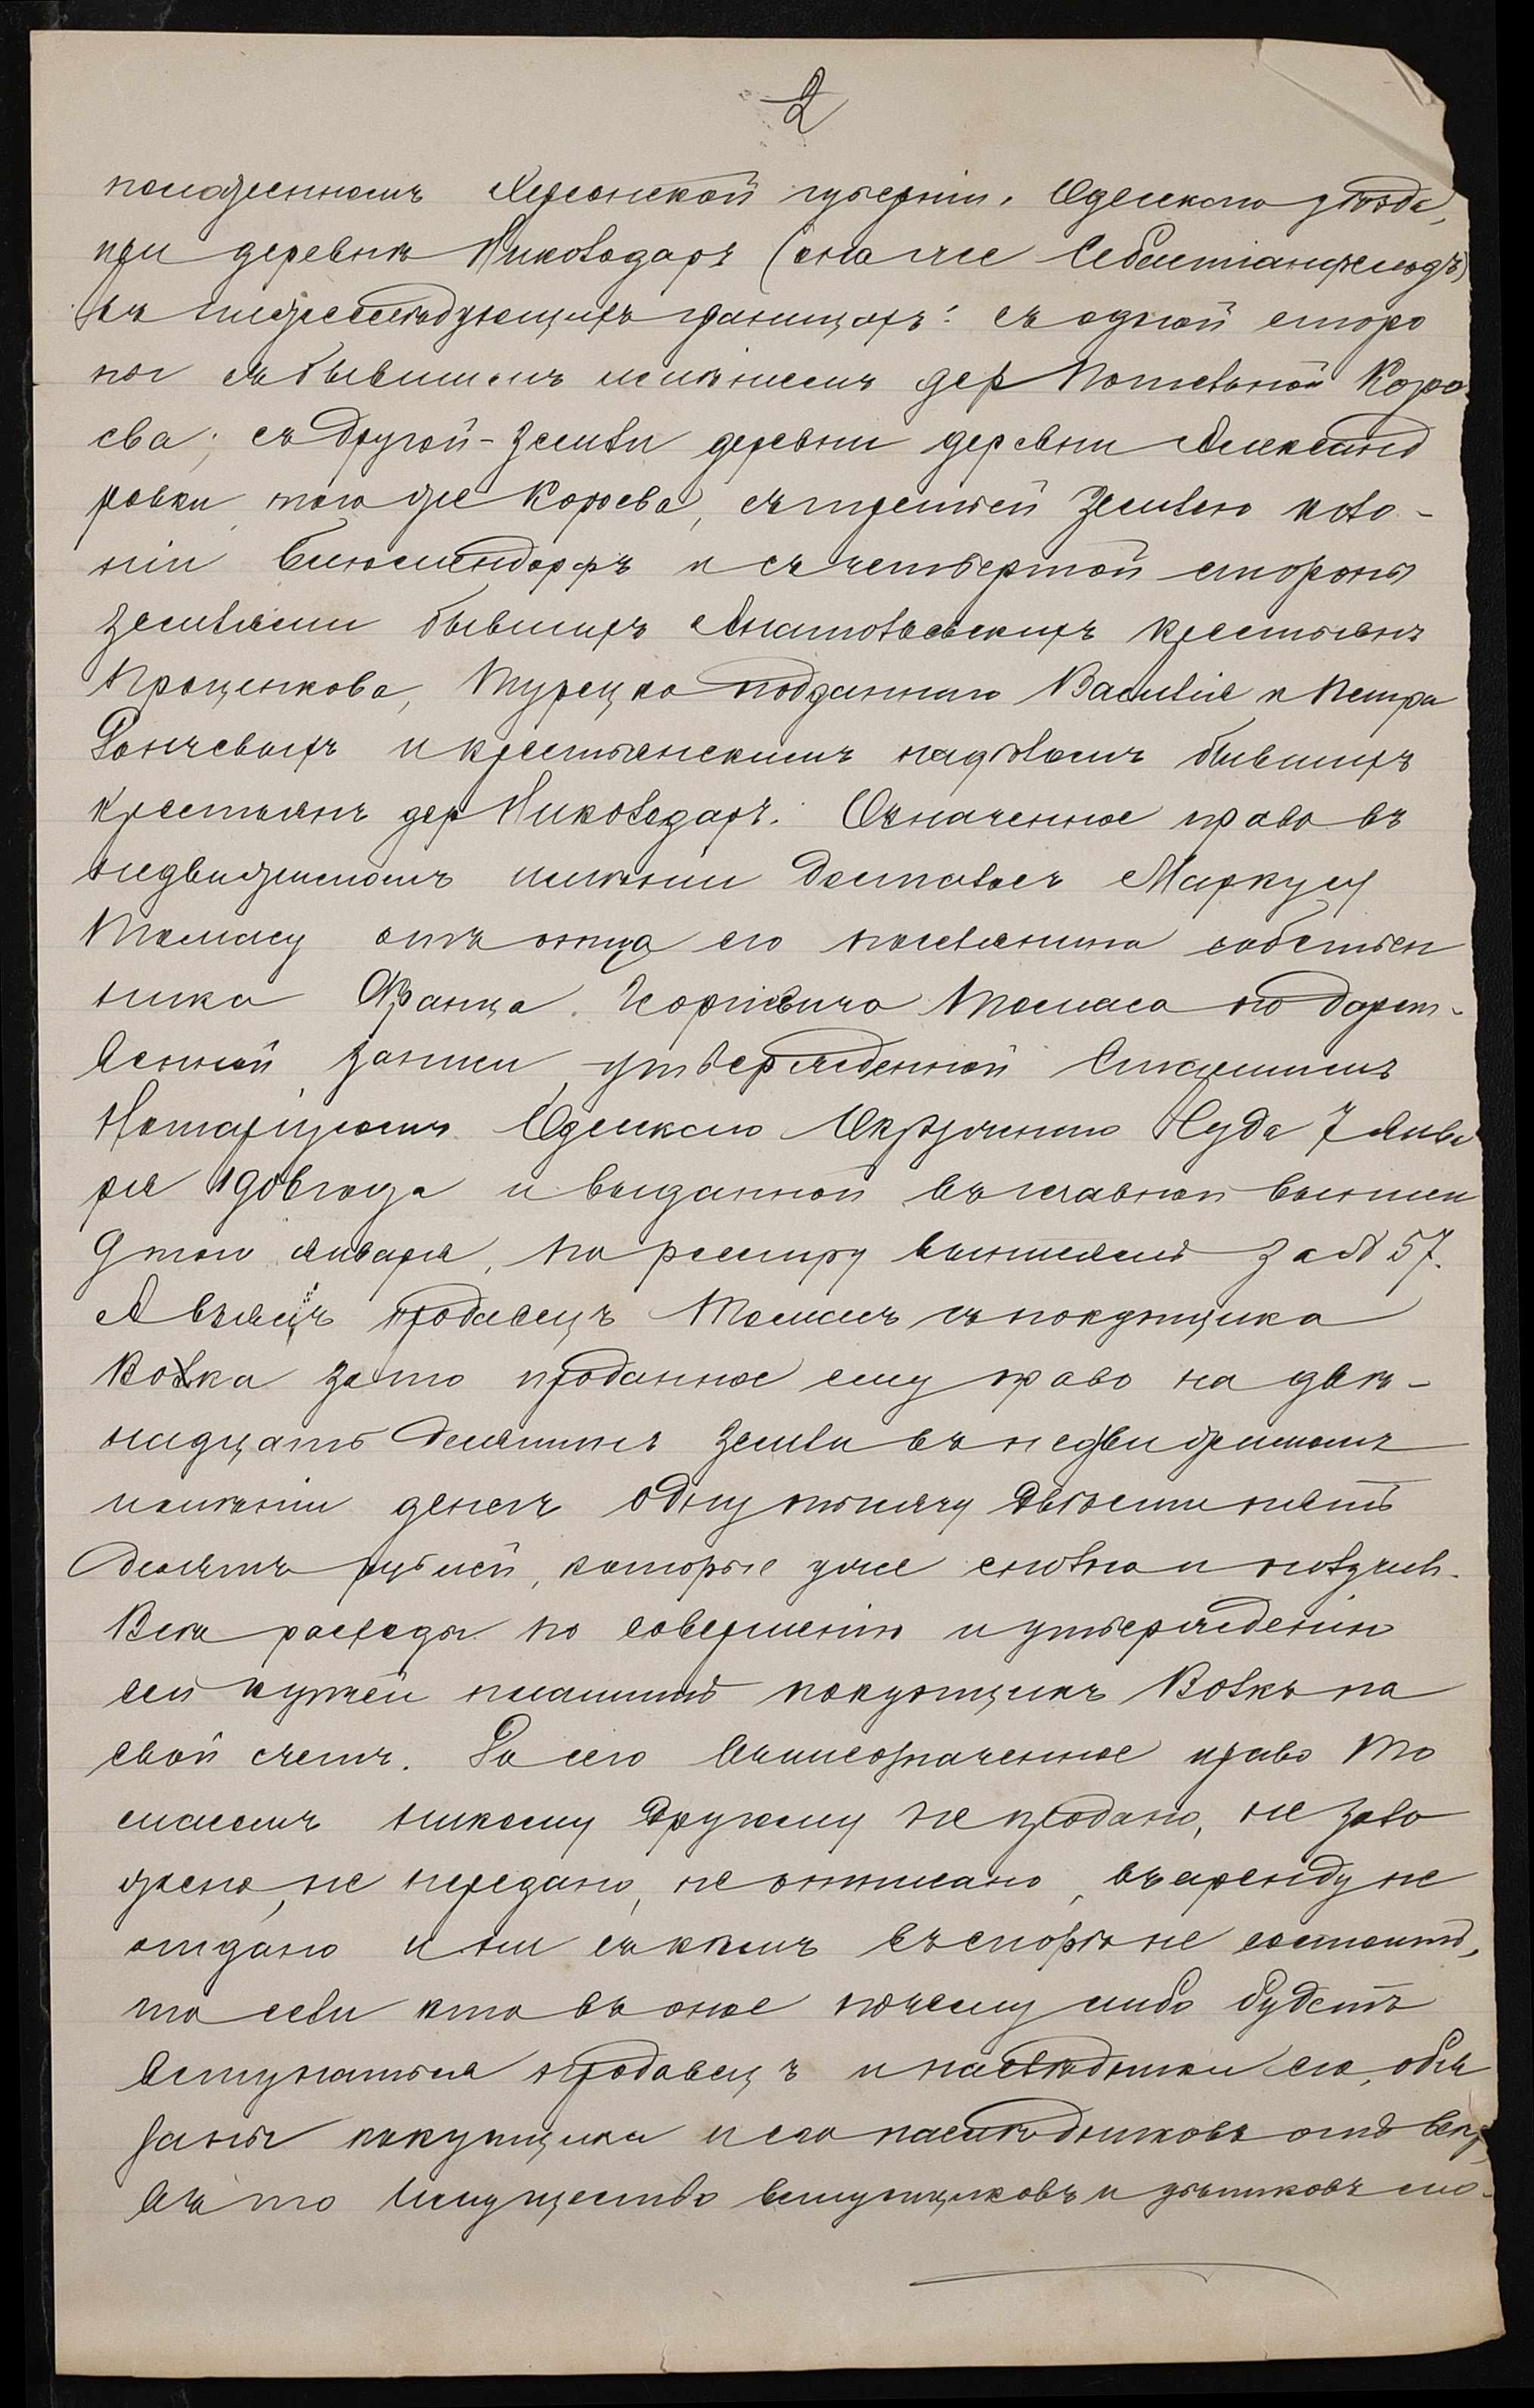 2
положенномъ Херсонской губерніи, Одесскаго уѣзда,
при деревнѣ Николодаръ (она же Себастіанфельдъ)
въ нижеслѣдующихъ границахъ: съ одной сторо
ны съ бывшимъ имѣніемъ дер
сва; съ другой - земли деревни деревни Александ
ровки, того же съ третьей землею коло-
ніи и съ четвертой стороны
землями бывшихъ Анатольевскихъ крестьянъ
Проценкова, Турецко подданнаго Василія и Петра
Ранчевыхъ и крестьянскимъ надѣломъ бывшихъ
крестьянъ дер Николодаръ. Означенное право въ
недвижимомъ имѣніи досталось Маркусу
Томасу отъ отца его поселянина собствен
ника Франца Георгіевича Томаса по дарст-
венной записи, утвержденной Старшимъ
Нотаріусомъ Одесскаго Окружнаго Суда 7 Янва
ря 1906 года и выданной въ главной выписи
9 того января, по реестру выписямъ за № 57.
А взялъ продавецъ Томасъ съ покупщика
Волка за то проданное ему право на двѣ-
надцать десятинъ земли въ недвижимомъ
имѣніи денегъ одну тысячу двѣсти пять
десятъ рублей, которые уже сполна и получилъ.
Всѣ расходы по совершенію и утвержденію
сей купчей платитъ покупщикъ Волкъ на
свой счетъ. До сего вышеозначенное право То
масомъ никому другому не продано, не зало
жено, не передано, не отписано, въ аренду не
отдано и ни съ кѣмъ въ спорѣ не состоитъ,
то если кто въ оное почему либо будетъ
вступаться продавецъ и наслѣдники его, обя
заны покупщика и его наслѣдниковъ отъ всяк
въ то имущество вступщиковъ и убытковъ